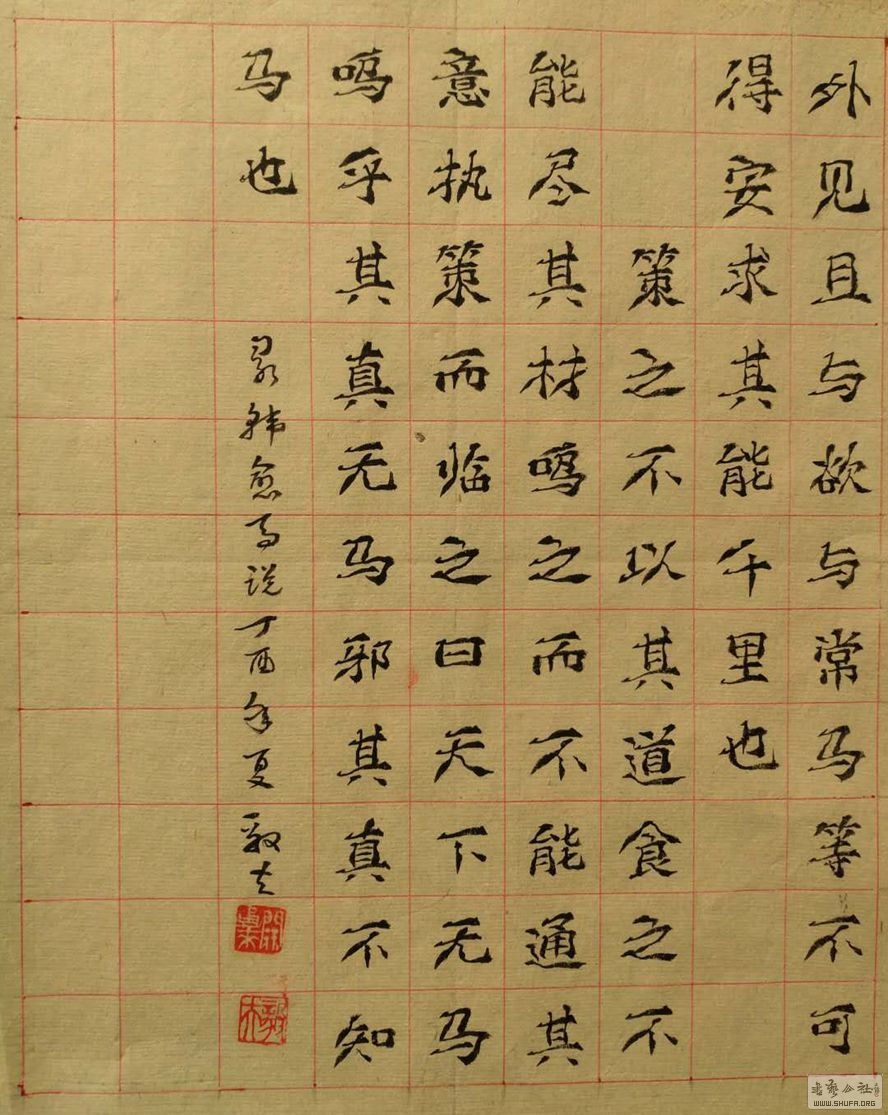 外见且与欲与常马等不可
得安求其能千里也
策之不以其道食之不
能尽其材鸣之而不能通其
意执策而临之曰天下无马
呜乎其真无马邪其真不知
马也
录韩愈马说丁酉年夏
书艺公社
WWW.SHUFA.ORG